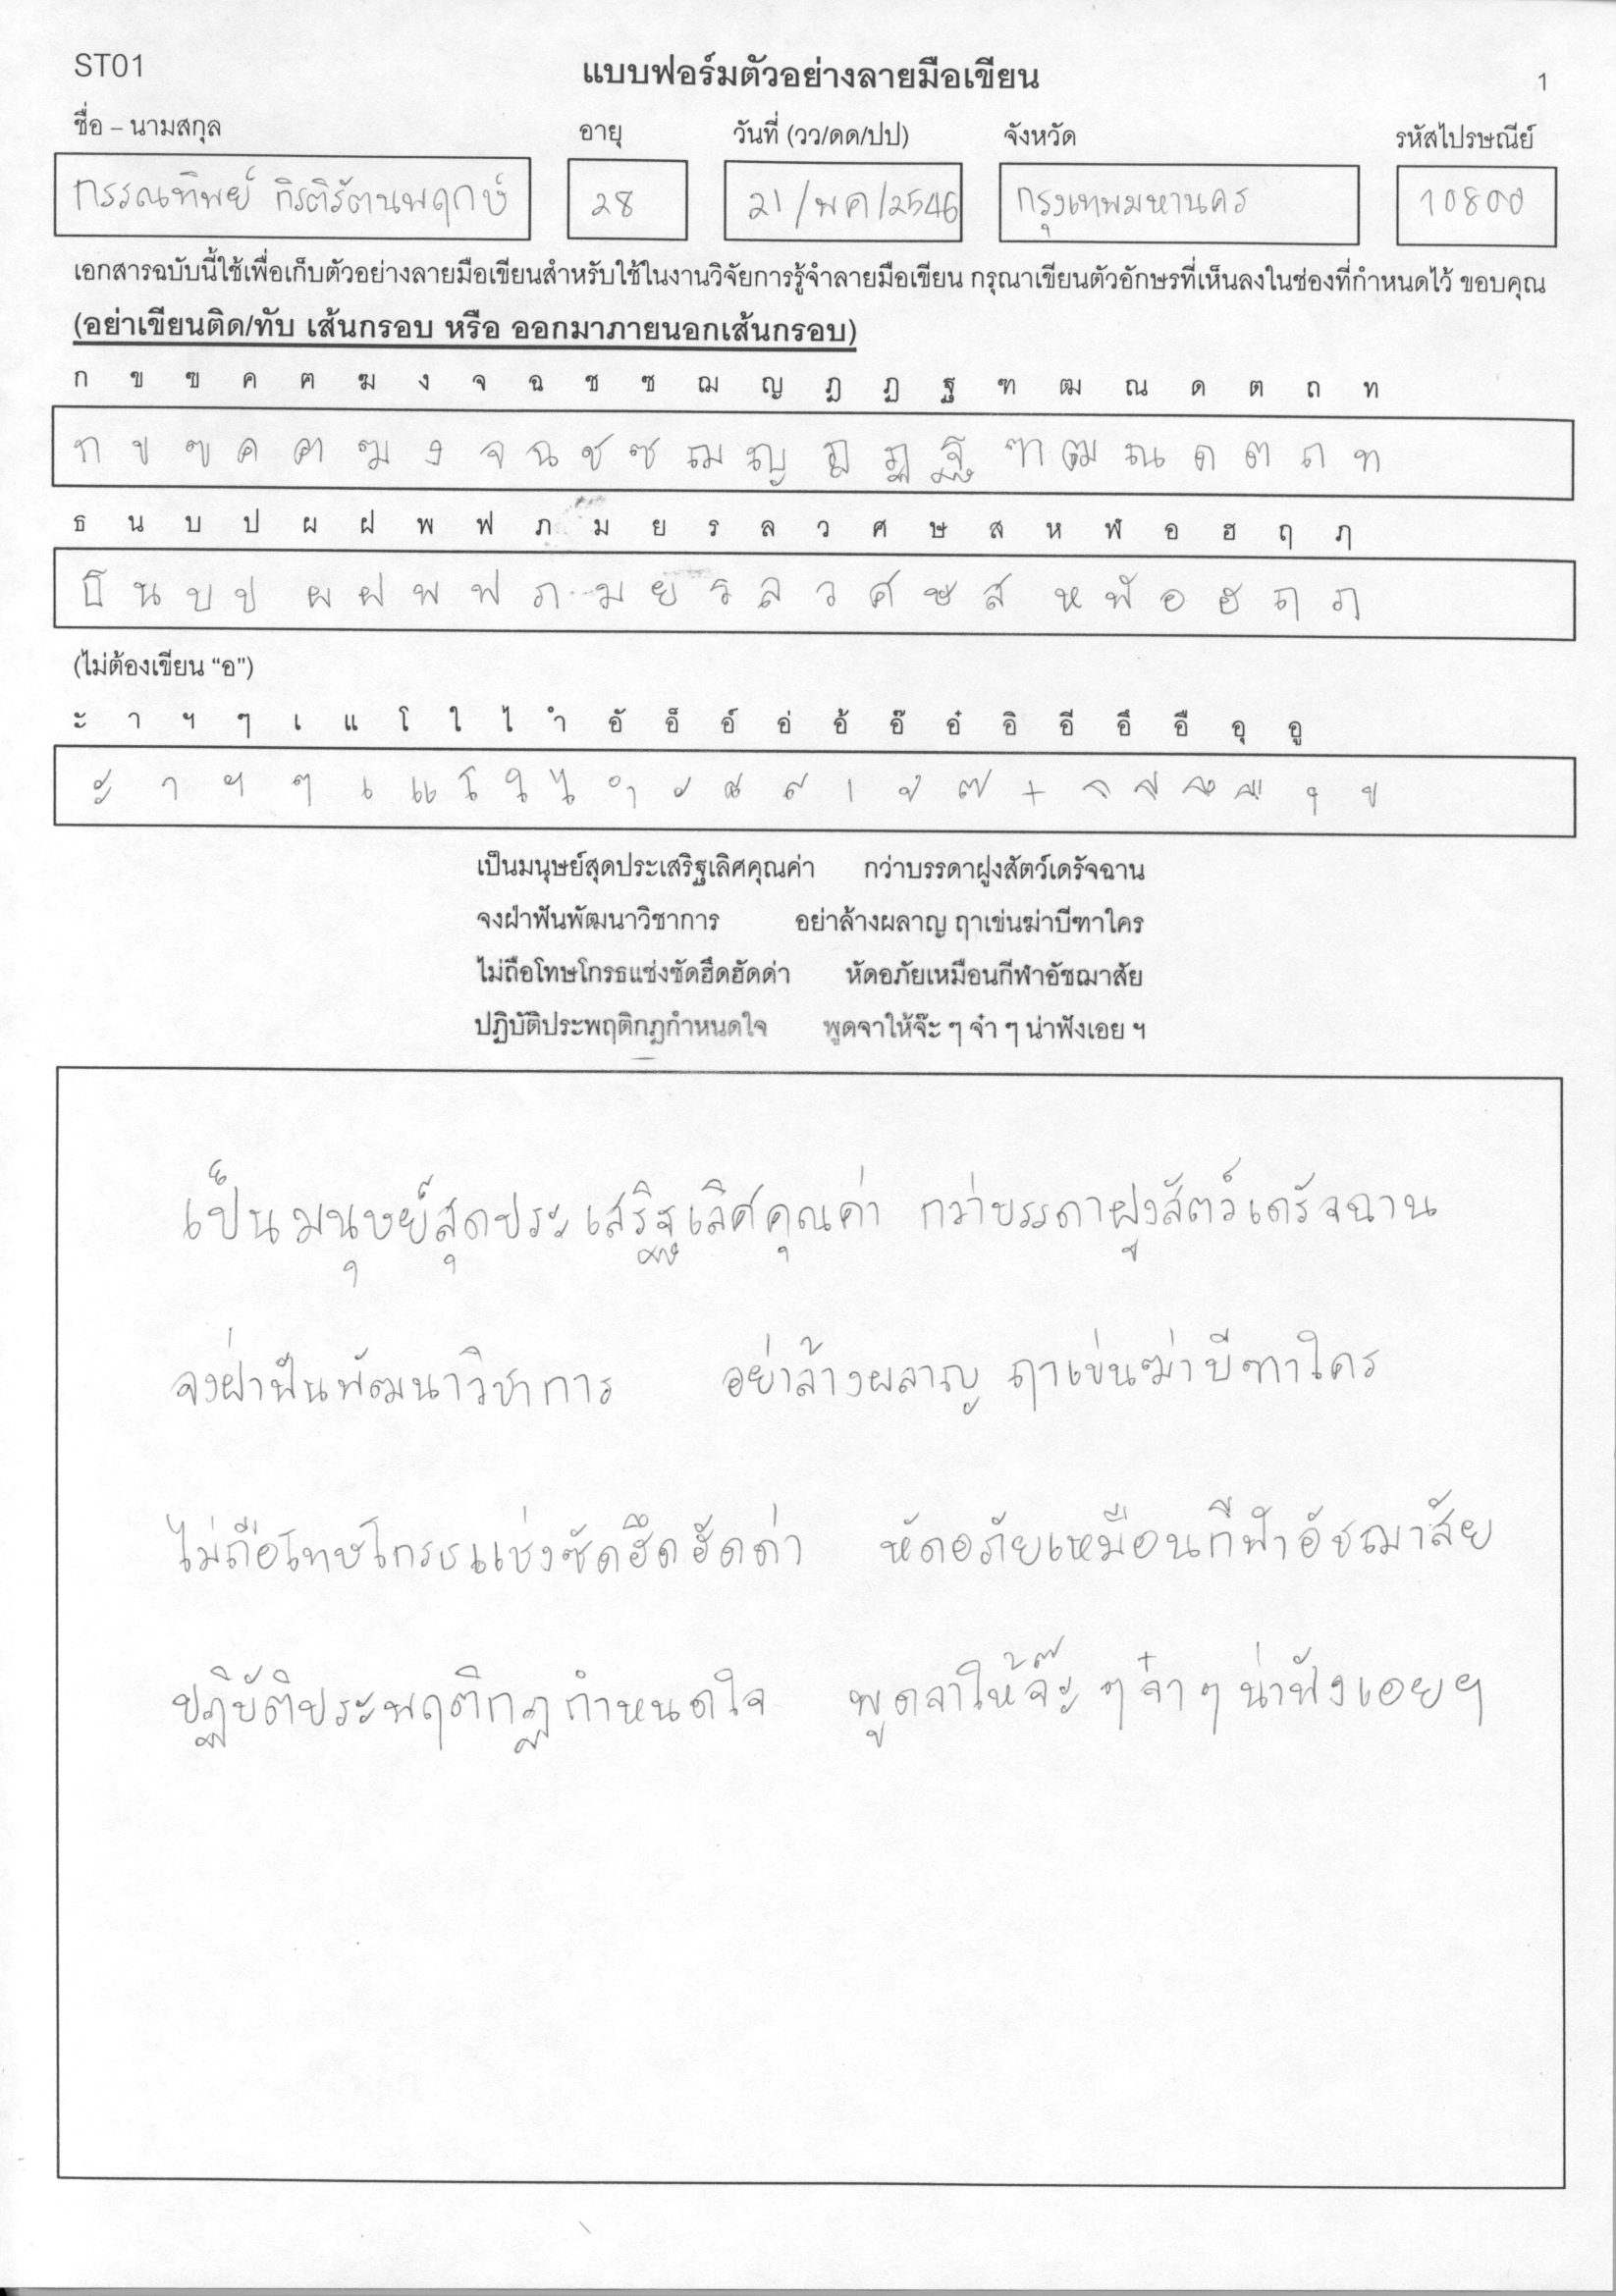 ST01
แบบฟอร์มตัวอย่างลายมือเขียน
1
ชื่อ – นามสกุล อายุ วันที่ (วว/ดด/ปป) จังหวัด รหัสไปรษณีย์
กรรณทิพย์ กิรติรัตนพฤกษ์ 28 21/พค/2546 กรุงเทพมหานคร 10800
เอกสารฉบับนี้ใช้เพื่อเก็บตัวอย่างลายมือเขียนสำหรับใช้ในงานวิจัยการรู้จำลายมือเขียน กรุณาเขียนตัวอักษรที่เห็นลงในช่องที่กำหนดไว้ ขอบคุณ
(อย่าเขียนติด/ทับ เส้นกรอบ หรือ ออกมาภายนอกเส้นกรอบ)
ก ข ฃ ค ฅ ฆ ง จ ฉ ช ซ ฌ ญ ฎ ฏ ฐ ฑ ฒ ณ ด ต ถ ท
ก ข ฃ ค ฅ ฆ ง จ ฉ ช ซ ฌ ญ ฎ ฏ ฐ ฑ ฒ ณ ด ต ถ ท
ธ น บ ป ผ ฝ พ ฟ ภ ม ย ร ล ว ศ ษ ส ห ฬ อ ฮ ฤ ฦ
ธ น บ ป ผ ฝ พ ฟ ภ ม ย ร ล ว ศ ษ ส ห ฬ อ ฮ ฤ ฦ
(ไม่ต้องเขียน “อ”)
ะ า ฯ ๆ เ แ โ ใ ไ ำ อั อ็ อ์ อ่ อ้ อ๊ อ๋ อิ อี อึ อื อุ อู
ะ า ฯ ๆ เ แ โ ใ ไ ำ ั ็ ์ ่ ้ ๊ ๋ ิ ี ึ ื ุ ู
เป็นมนุษย์สุดประเสริฐเลิศคุณค่า กว่าบรรดาฝูงสัตว์เดรัจฉาน
จงฝ่าฟันพัฒนาวิชาการ อย่าล้างผลาญ ฤาเข่นฆ่าบีฑาใคร
ไม่ถือโทษโกรธแช่งซัดฮึดฮัดด่า หัดอภัยเหมือนกีฬาอัชฌาสัย
ปฏิบัติประพฤติกฎกำหนดใจ พูดจาให้จ๊ะ ๆ จ๋า ๆ น่าฟังเอย ฯ
เป็นมนุษย์สุดประเสริฐเลิศคุณค่า กว่าบรรดาฝูงสัตว์เดรัจฉาน
จงฝ่าฟันพัฒนาวิชาการ อย่าล้างผลาญ ฤาเข่นฆ่าบีฑาใคร
ไม่ถือโทษโกรธแช่งซัดฮึดฮัดด่า หัดอภัยเหมือนกีฬาอัชฌาสัย
ปฏิบัติประพฤติกฏกำหนดใจ พูดจาให้จ๊ะ ๆ จ๋า ๆ น่าฟังเอย ฯ